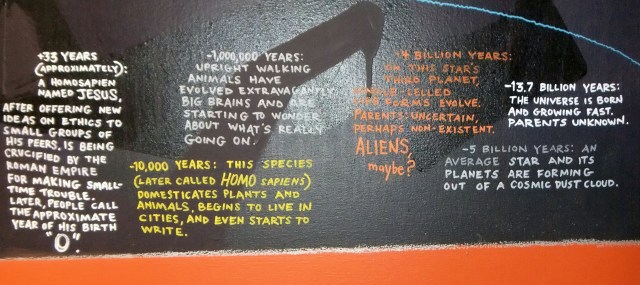 +33 YEARS
(APPROXIMATELY):
HOMOSAPIEN
NAMED JESUS,
AFTER OFFERING NEW
IDEAS ON ETHICS TO
SMALL GROUPS OF
HIS PEERS, IS BEING
CRUCIFIED BY THE
ROMAN EMPIRE
FOR MAKING SMALL-
TIME TROUBLE.
LATER, PEOPLE CALL
THE APPROXIMATE
YEAR OF HIS BIRTH
"0".
-1,000,000 YEARS:
UPRIGHT WALKING
ANIMALS HAVE
EVOLVED EXTRAVAGANTLY
BIG BRAINS AND ARE
STARTING TO WONDER
ABOUT WHAT'S REALLY
GOING ON.
-10,000 YEARS: THIS SPECIES
(LATER CALLED HOMO SAPIENS)
DOMESTICATES PLANTS AND
ANIMALS, BEGINS TO LIVE IN
CITIES, AND EVEN STARTS TO
WRITE.
-4 BILLION YEARS:
ON THIS STAR'S
THIRD PLANET,
SINGLE-CELLED
LIFE FORMS EVOLVE.
PARENTS: UNCERTAIN,
PERHAPS NON-EXISTENT.
ALIENS,
maybe?
-13.7 BILLION YEARS:
THE UNIVERSE IS BORN
AND GROWING FAST.
PARENTS UNKNOWN.
-5 BILLION YEARS: AN
AVERAGE STAR AND ITS
PLANETS ARE FORMING
OUT OF A COSMIC DUST CLOUD.